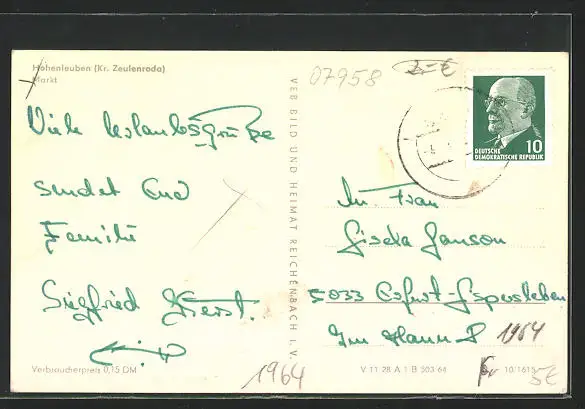 Hohenleuben (Kr. Zeulenroda)
Markt
07958
Viele Urlaubsgrüße
sendet Euch
Familie
Siegfried
VEB BILD UND HEIMAT REICHENBACH I. V.
10
DEUTSCHE
DEMOKRATISCHE REPUBLIK
An Frau
Gisela Janson
5033 Erfurt-Gispersleben
1964
Verbraucherpreis 0,15 DM
1964
V 11 28 A 1 B 503/64
5€